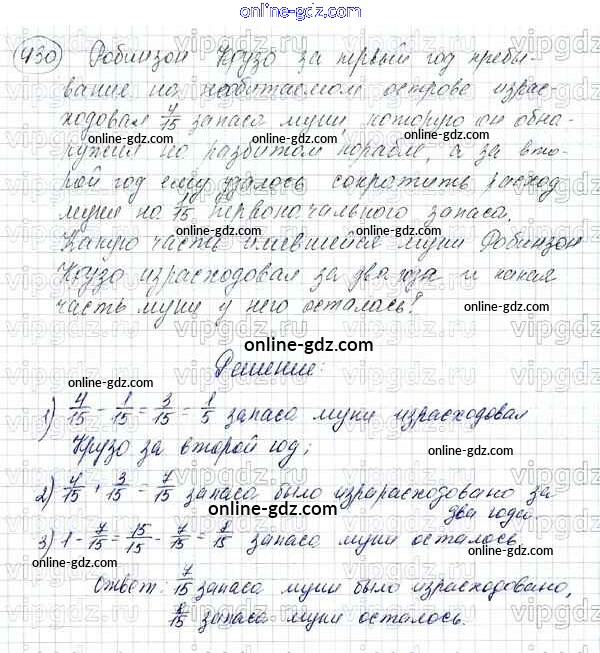 online-gdz.com
430 Робинзон Крузо за первый год пребы-
вание на необитаемом острове израс-
ходовал 4/15 запаса муки, которую он обна-
online-gdz.com online-gdz.com online-gdz.com
ружил на разбитом корабле, а за вто-
рой год ему удалось сократить расход
муки на 1/15 первоначального запаса.
online-gdz.com online-gdz.com online-gdz.com
Какую часть имевшейся муки Робинзон
Крузо израсходовал за два года и какая
часть муки у него осталась?
online-gdz.com
online-gdz.com
Решение:
online-gdz.com
1) 4/15 - 1/15 = 3/15 = 1/5 запаса муки израсходовал
Крузо за второй год;
online-gdz.com online-gdz.com
2) 4/15 + 3/15 = 7/15 запаса было израрасходовано за
два года.
online-gdz.com
3) 1 - 7/15 = 15/15 - 7/15 = 8/15 запаса муки осталось
online-gdz.com
Ответ: 7/15 запаса муки было израсходовано,
online-gdz.com online-gdz.com
8/15 запаса муки осталось.
online-gdz.com